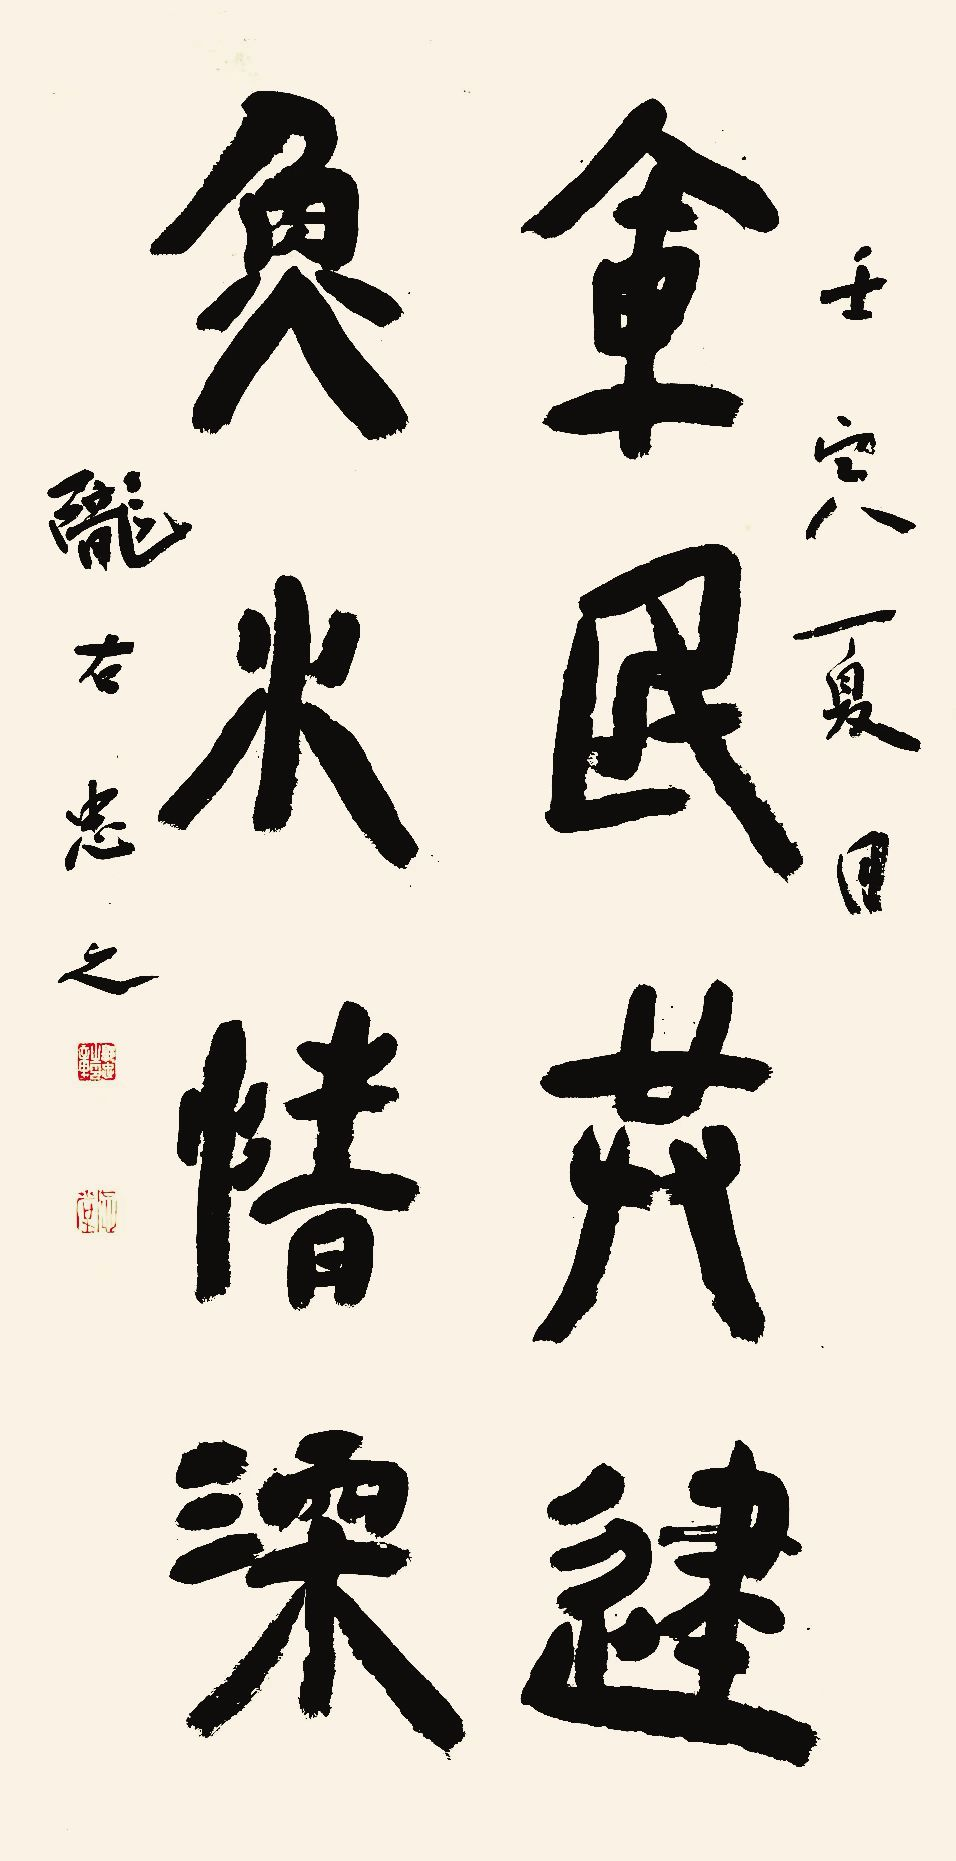 壬寅夏月
軍民共建
魚水情深
隴右忠之